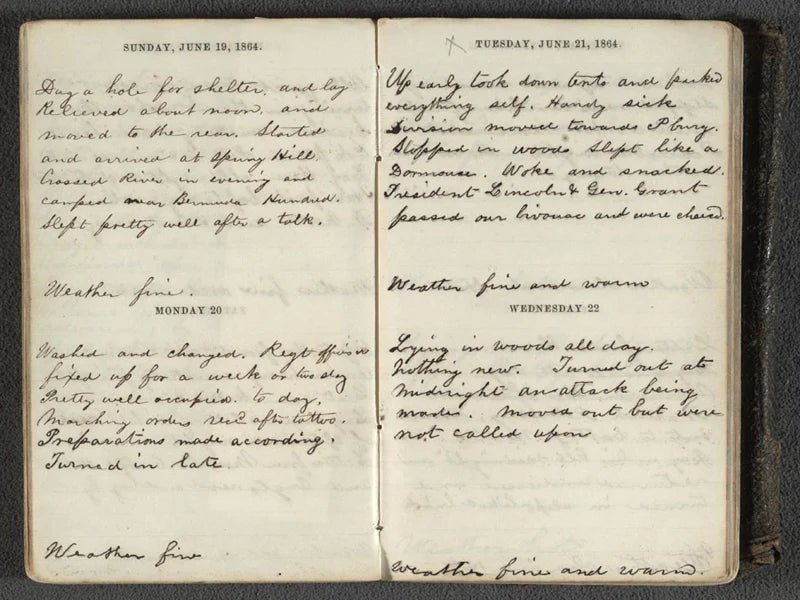 SUNDAY, JUNE 19, 1864.
Dug a hole for shelter, and lay
Relieved about noon, and
moved to the rear. Started
and arrived at Spring Hill.
Crossed River in evening and
camped near Bermuda Hundred.
Slept pretty well after a talk.
Weather fine.
MONDAY 20
Washed and changed. Regt
fixed up for a week or two stay
Pretty well occupied to day.
Marching orders recd after tattoo.
Preparations made according.
Turned in late
Weather fine
TUESDAY, JUNE 21, 1864.
Up early took down tents and packed
everything self. Handy sick
Division moved towards Pburg.
Stopped in woods slept like a
Dormouse. Woke and snacked.
President Lincoln & Gen. Grant
passed our bivouac and were cheered.
Weather fine and warm
WEDNESDAY 22
Lying in woods all day.
Nothing new. Turned out at
Midnight an attack being
made. Moved out but were
not called upon
Weather fine and warm.